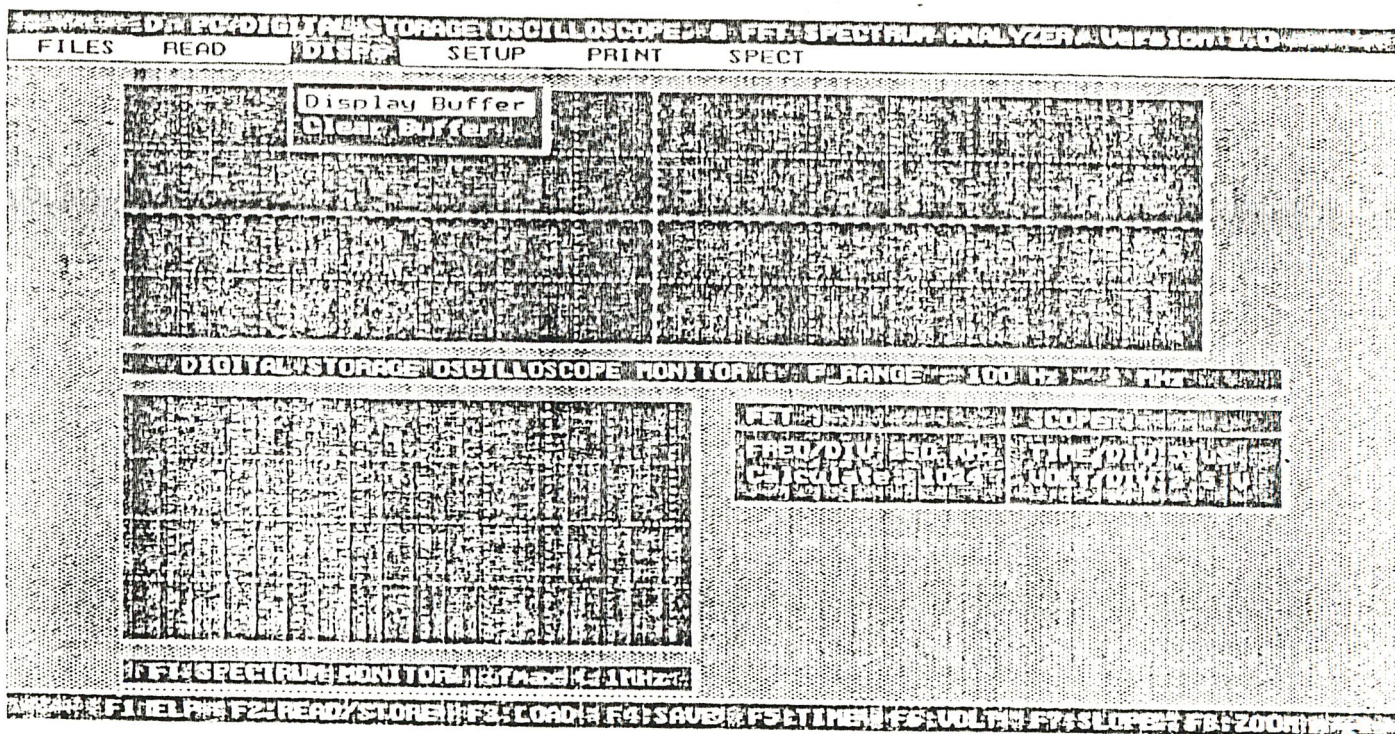 PC DIGITAL STORAGE OSCILLOSCOPE & FFT SPECTRUM ANALYZER Version
FILES READ DISP. SETUP PRINT SPECT
Display Buffer
Clear Buffer
DIGITAL STORAGE OSCILLOSCOPE MONITOR F_RANGE = 100 Hz - 1 MHz
FFT SCOPE
FREQ/DIV: KHz TIME/DIV: uS
Calculate: 1024 VOLT/DIV: V
SPECTRUM MONITOR fmax < 1MHz
F1:HELP F2:READ/STORE F3:LOAD F4:SAVE F5:TIME F6:VOLT F7:SLOPE F8:ZOOM